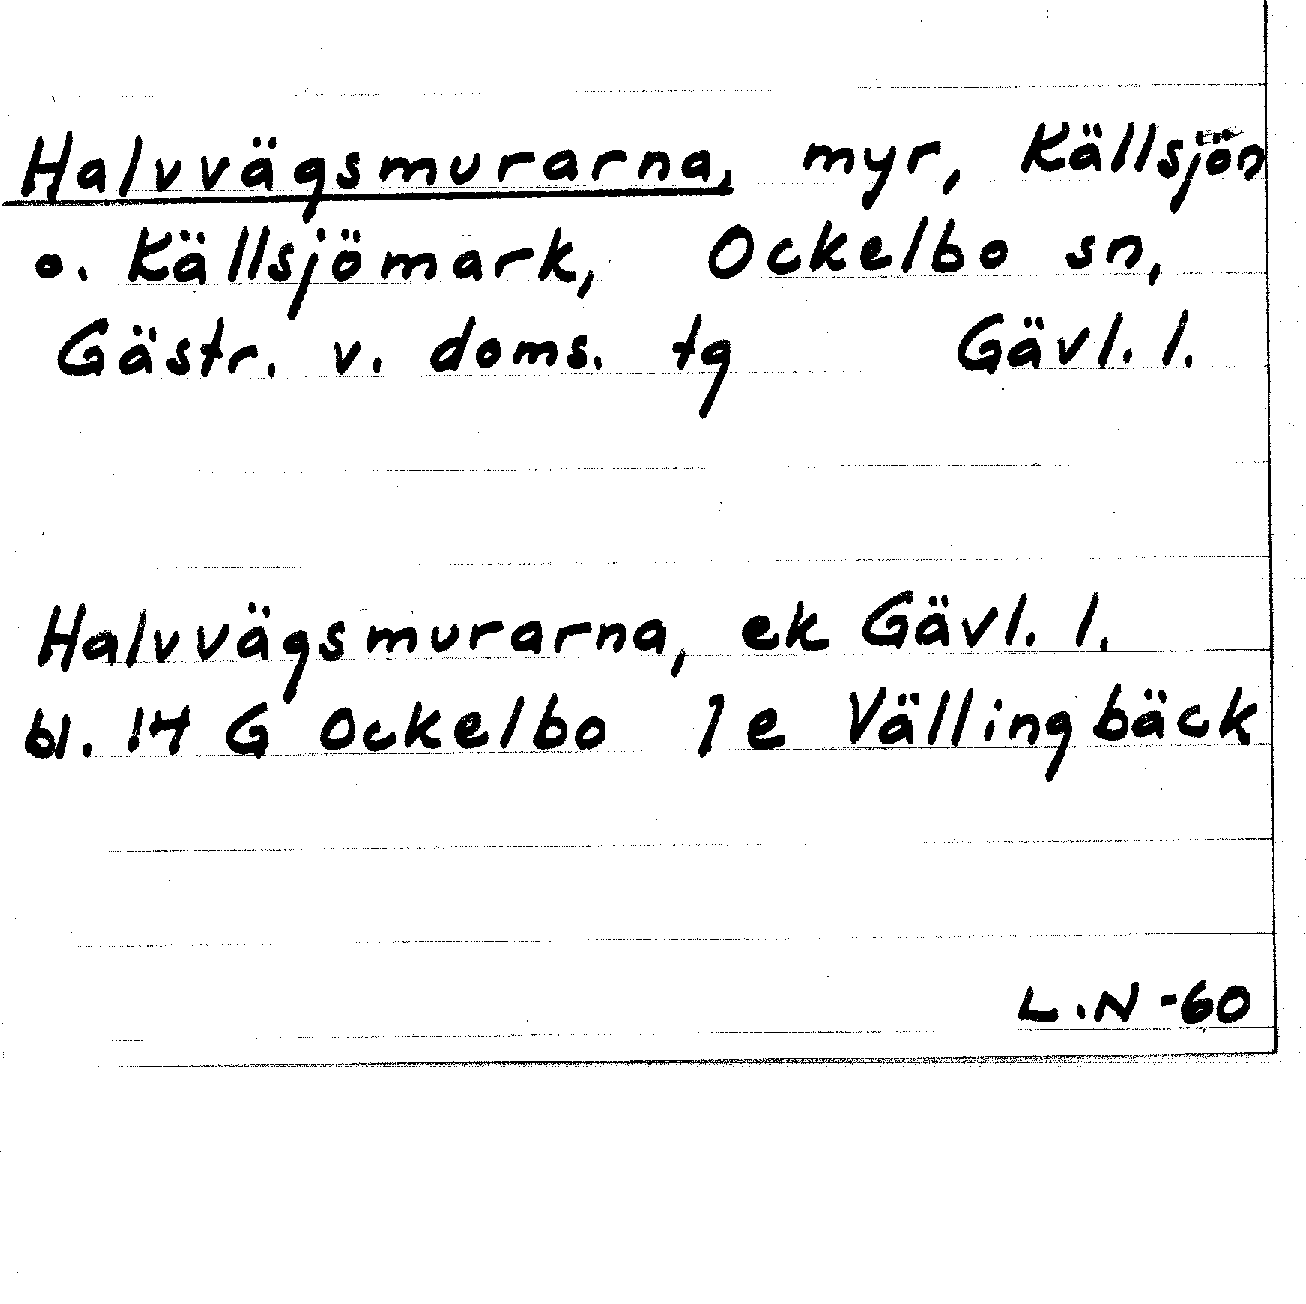 Halvvägsmurarna, myr, Källsjön
o. Källsjömark, Ockelbo sn,
Gästr. v. doms. tg Gävl. l.
Halvvägsmurarna, ek Gävl. l.
bl. 14 G Ockelbo 1e Vällingbäck
L.N -60